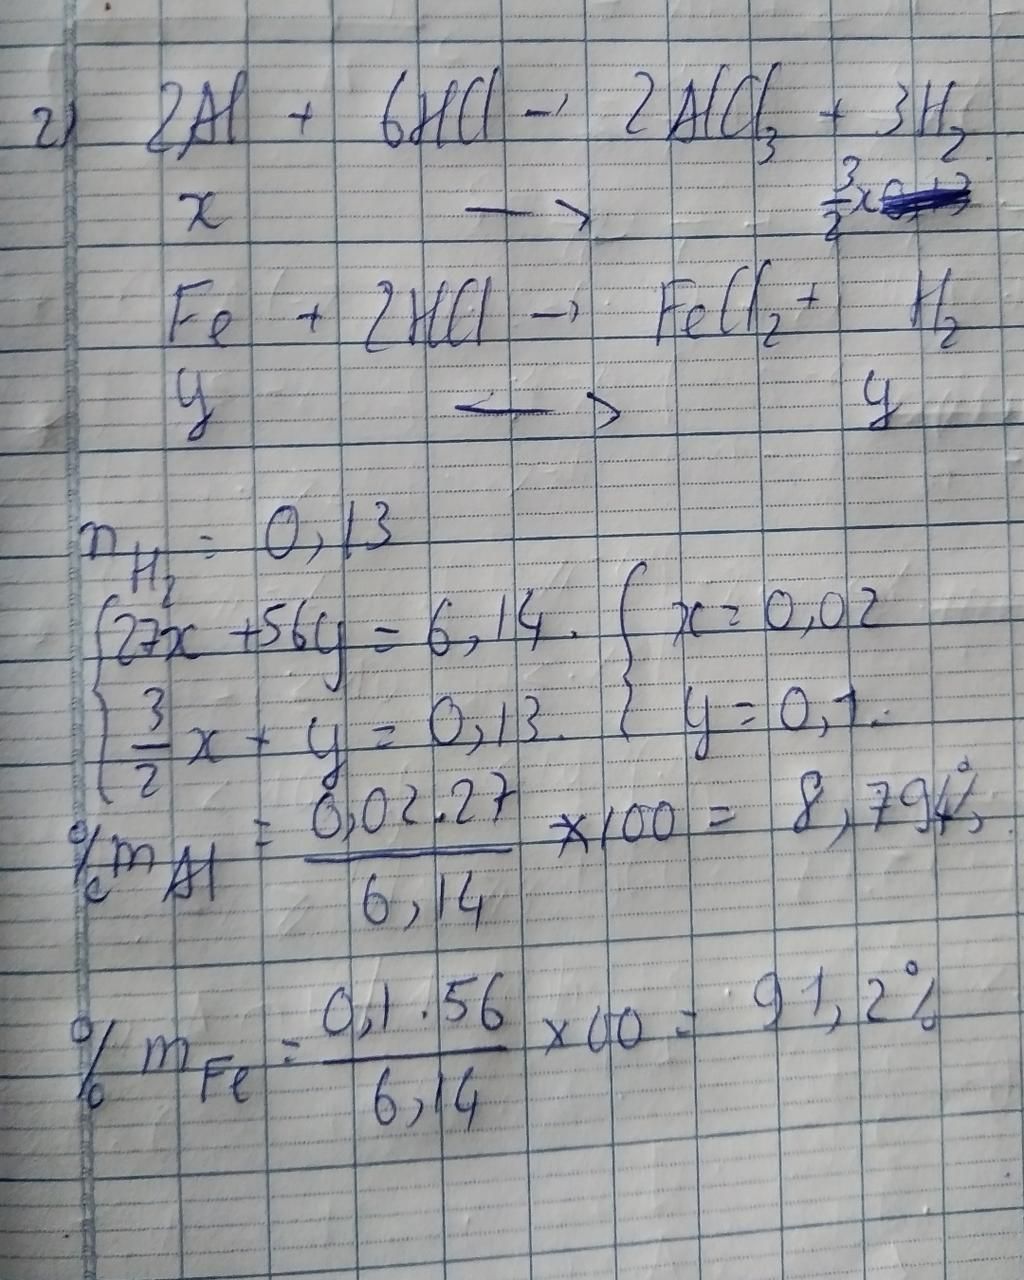 2) 2Al + 6HCl → 2AlCl₃ + 3H₂
x → 3/2 x
Fe + 2HCl → FeCl₂ + H₂
y → y
n H₂ = 0,13
{ 27x + 56y = 6,14. { x = 0,02
{ 3/2 x + y = 0,13. { y = 0,1.
% m Al = 0,02.27 / 6,14 ×100 = 8,794%
% m Fe = 0,1.56 / 6,14 ×00 = 91,2%